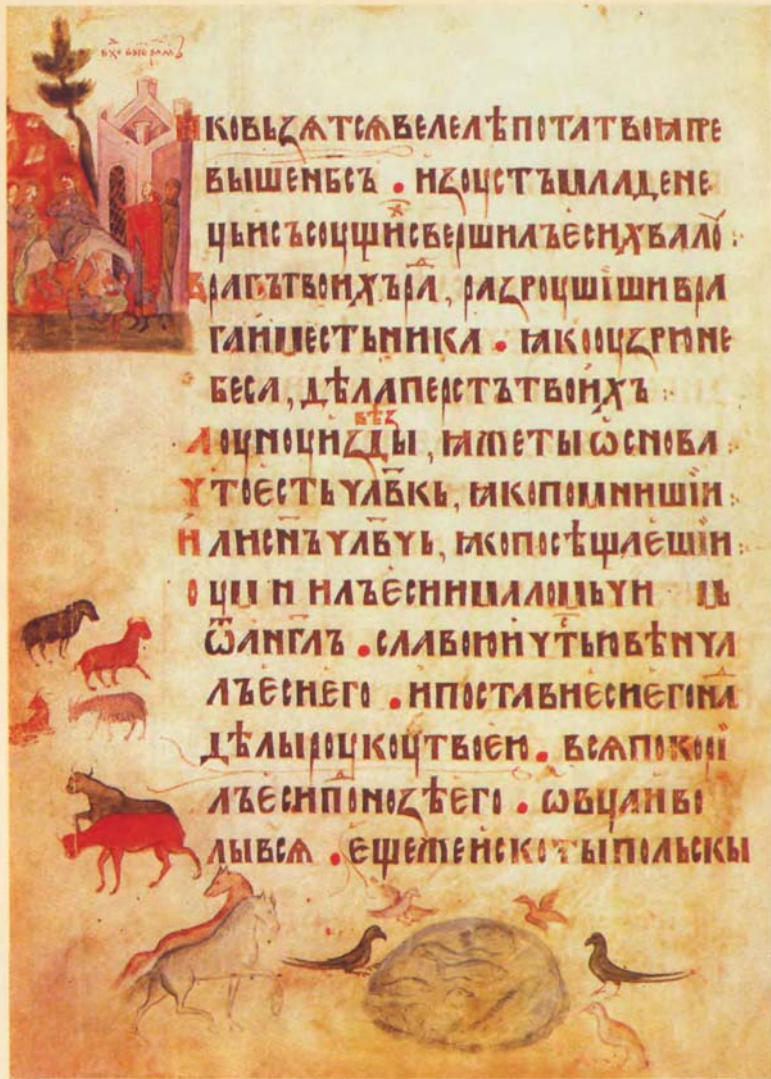 ꙗковьꙁѧтсѧвелелѣпотатвоꙗпре
вышенбсъ • иꙁоустъмладене
цьисъсоущиⷯсвершилъесихвалоу :
врагътвоихърⷶа, раꙁроушішивра
гаиместьника • ꙗкооуꙁрюне
беса, дѣлаперстътвоихъ :
лоуноуиꙁвѣꙁды, ꙗжетыѡснова :
чтоестьчл҃вкь, ꙗкопомнишіи :
илисн҃ъчл҃вчь, ꙗкопосѣщаешіи :
ѿанг҃лъ • славоюичтьювѣнча
лъесиего • ипоставиесиегона
дѣлыроукоутвоею • всѧпокори
лъесипⷣоноꙁѣего • ѡвцаиво
лывсѧ • ещежеискотыпольскы